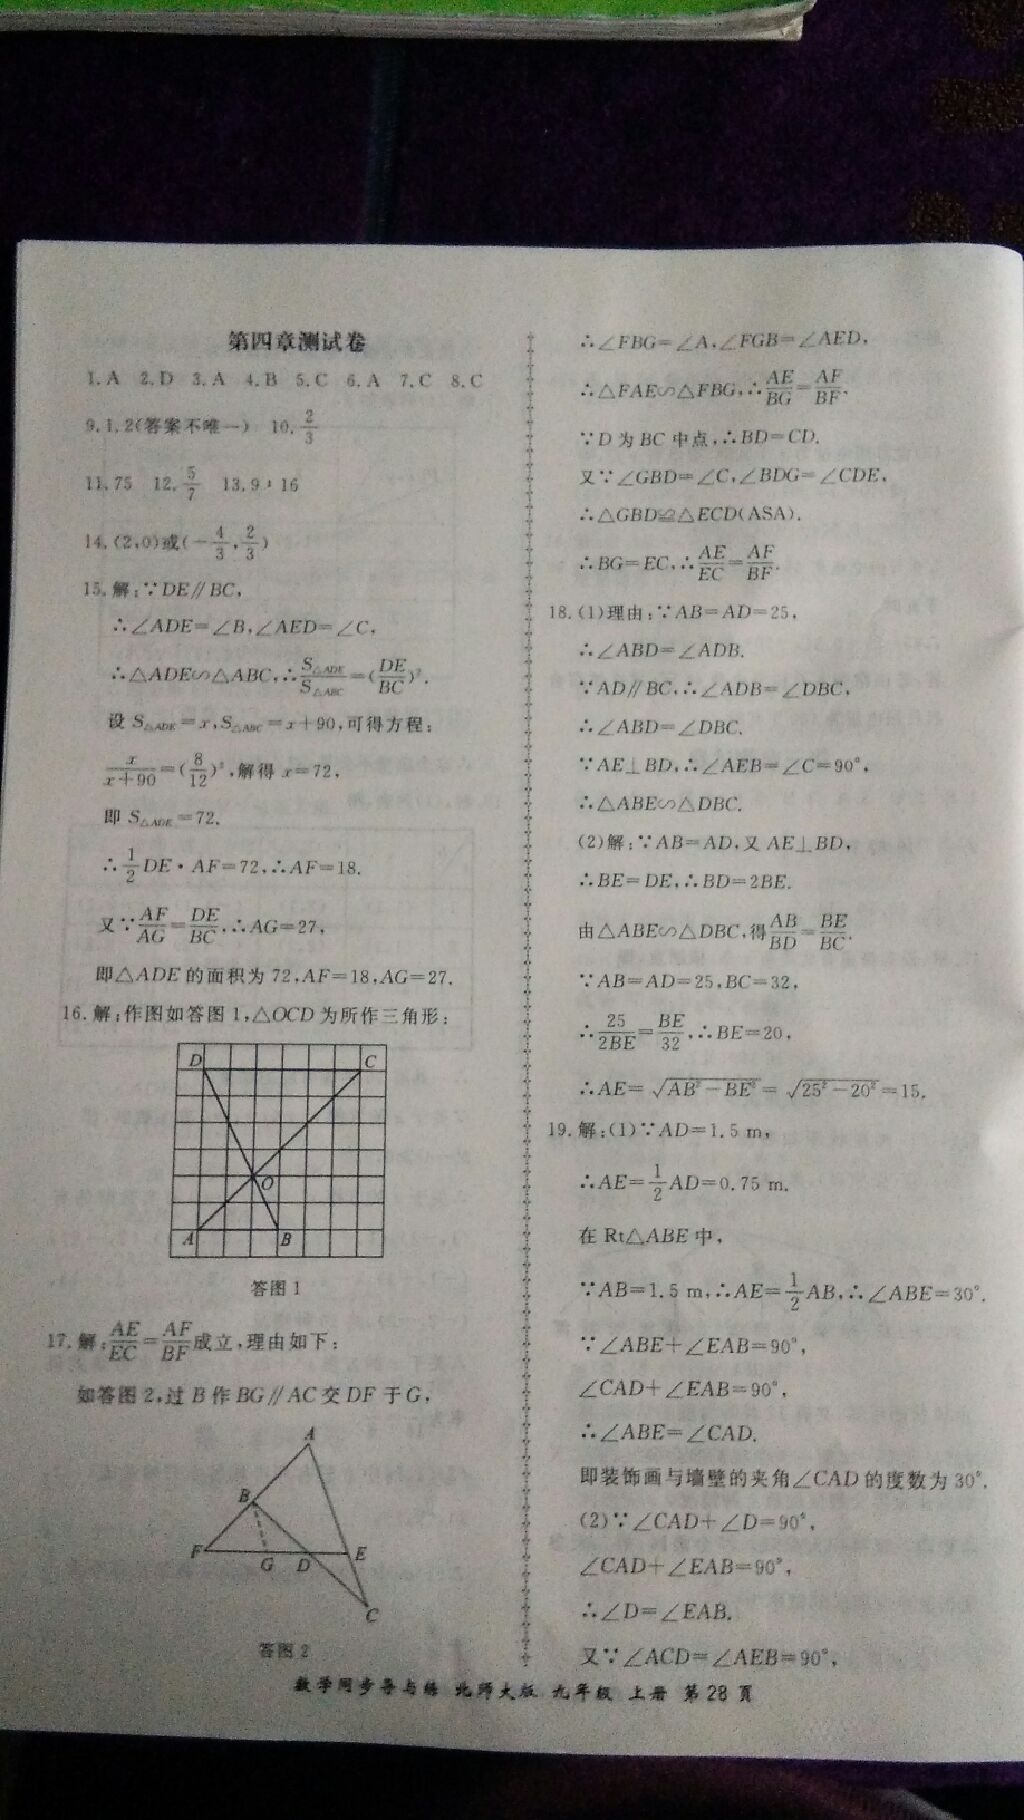 第四章测试卷
1.A 2.D 3.A 4.B 5.C 6.A 7.C 8.C
9.1,2(答案不唯一) 10.2/3
11.75 12.5/7 13.9:16
14.(2,0)或(-4/3,2/3)
15.解:∵DE∥BC,
∴∠ADE=∠B,∠AED=∠C,
∴△ADE∽△ABC,∴S△ADE/S△ABC=(DE/BC)².
设 S△ADE=x,S△ABC=x+90,可得方程:
x/(x+90)=(8/12)²,解得 x=72,
即 S△ADE=72.
∴1/2DE·AF=72,∴AF=18.
又∵AF/AG=DE/BC,∴AG=27,
即△ADE 的面积为 72,AF=18,AG=27.
16.解:作图如答图 1,△OCD 为所作三角形:
D C
O
A B
答图 1
17.解:AE/EC=AF/BF成立,理由如下:
如答图 2,过 B 作 BG∥AC 交 DF 于 G,
A
B
F G D E
C
答图 2
∴∠FBG=∠A,∠FGB=∠AED,
∴△FAE∽△FBG,∴AE/BG=AF/BF.
∵D 为 BC 中点,∴BD=CD.
又∵∠GBD=∠C,∠BDG=∠CDE,
∴△GBD≌△ECD(ASA).
∴BG=EC,∴AE/EC=AF/BF.
18.(1)理由:∵AB=AD=25,
∴∠ABD=∠ADB.
∵AD∥BC,∴∠ADB=∠DBC,
∴∠ABD=∠DBC.
∵AE⊥BD,∴∠AEB=∠C=90°,
∴△ABE∽△DBC.
(2)解:∵AB=AD,又 AE⊥BD,
∴BE=DE,∴BD=2BE.
由△ABE∽△DBC,得AB/BD=BE/BC.
∵AB=AD=25,BC=32,
∴25/2BE=BE/32,∴BE=20,
∴AE=√(AB²-BE²)=√(25²-20²)=15.
19.解:(1)∵AD=1.5 m,
∴AE=1/2AD=0.75 m.
在 Rt△ABE 中,
∵AB=1.5 m,∴AE=1/2AB,∴∠ABE=30°.
∵∠ABE+∠EAB=90°,
∠CAD+∠EAB=90°,
∴∠ABE=∠CAD.
即装饰画与墙壁的夹角∠CAD 的度数为 30°.
(2)∵∠CAD+∠D=90°,
∠CAD+∠EAB=90°,
∴∠D=∠EAB.
又∵∠ACD=∠AEB=90°,
数学同步导与练 北师大版 九年级 上册 第28頁